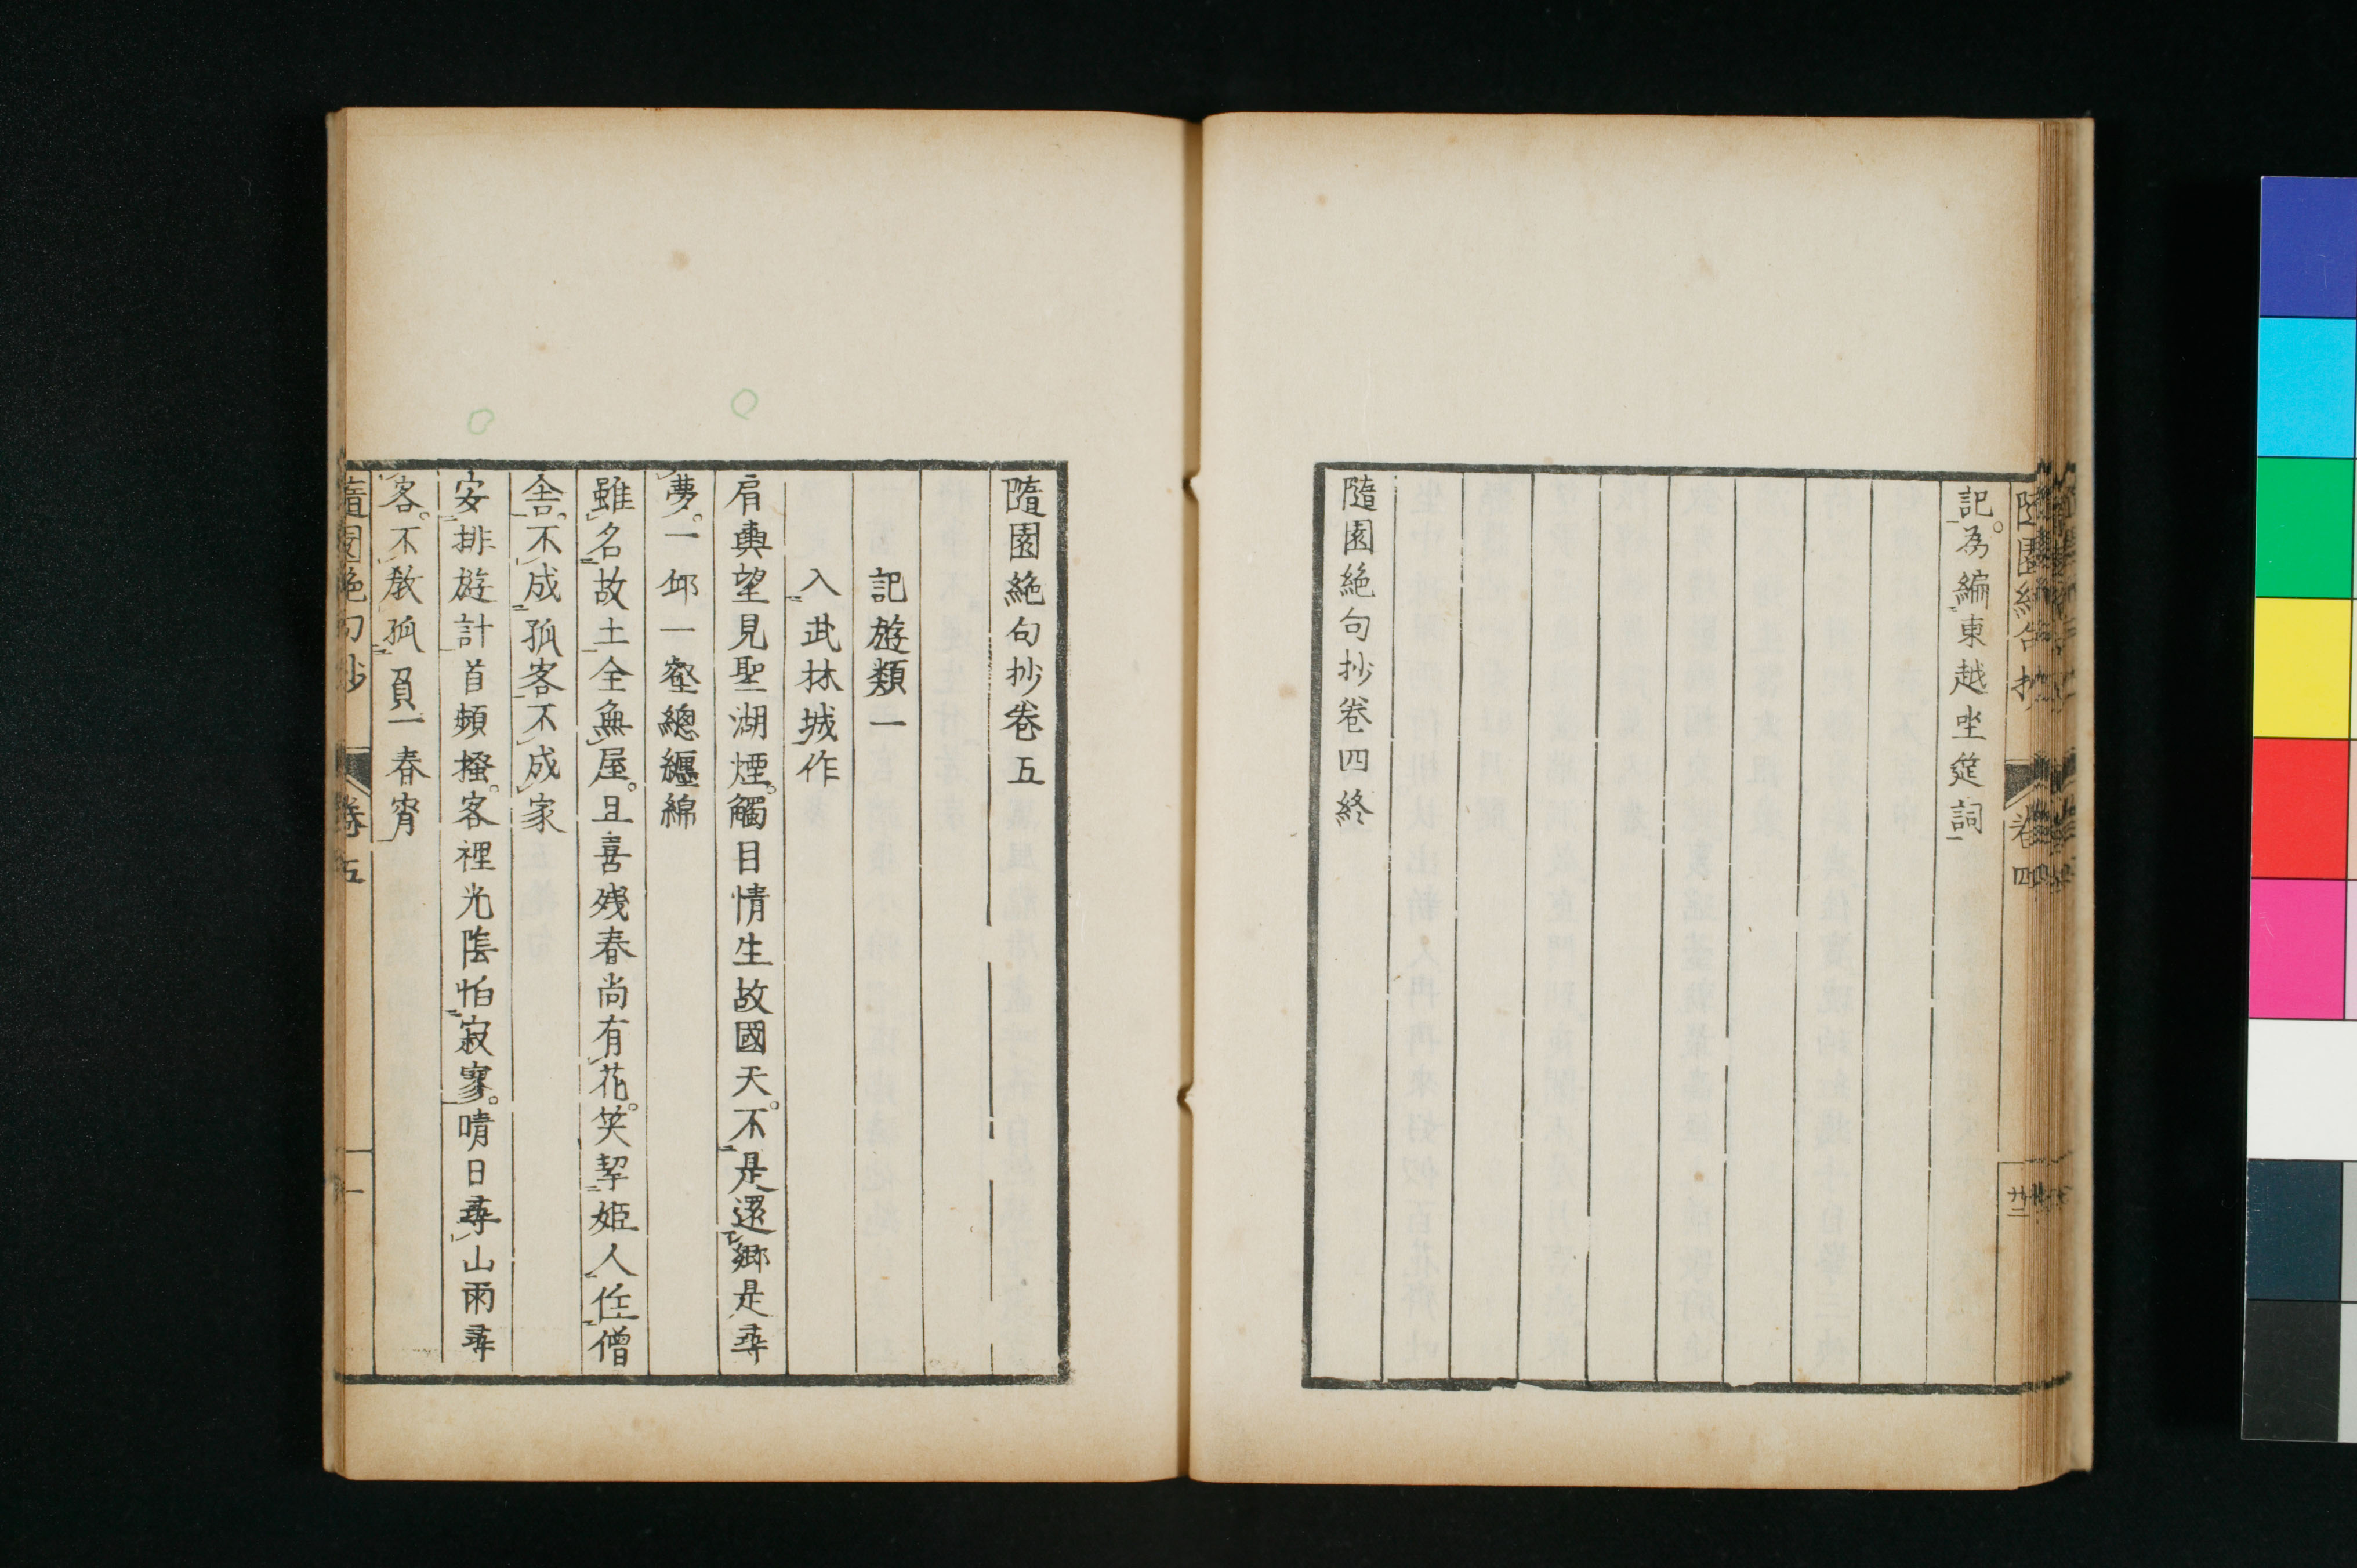 記。為編東越坐筵詞
隨園絶句抄卷四終
隨園絶句抄卷五
記遊類一
入武林城作
肩輿望見聖湖煙。觸目情生故國天。不是還鄉是尋
夢。一邱一壑總纏綿
雖名故土全無屋。且喜殘春尚有花。笑挈姬人住僧
舎。不成孤客不成家
安排遊計首頻搔。客裡光陰怕寂寥。晴日尋山雨尋
客。不教孤負一春宵
隨園絶句抄
卷五
一
隨園絶句抄
卷四
廿二